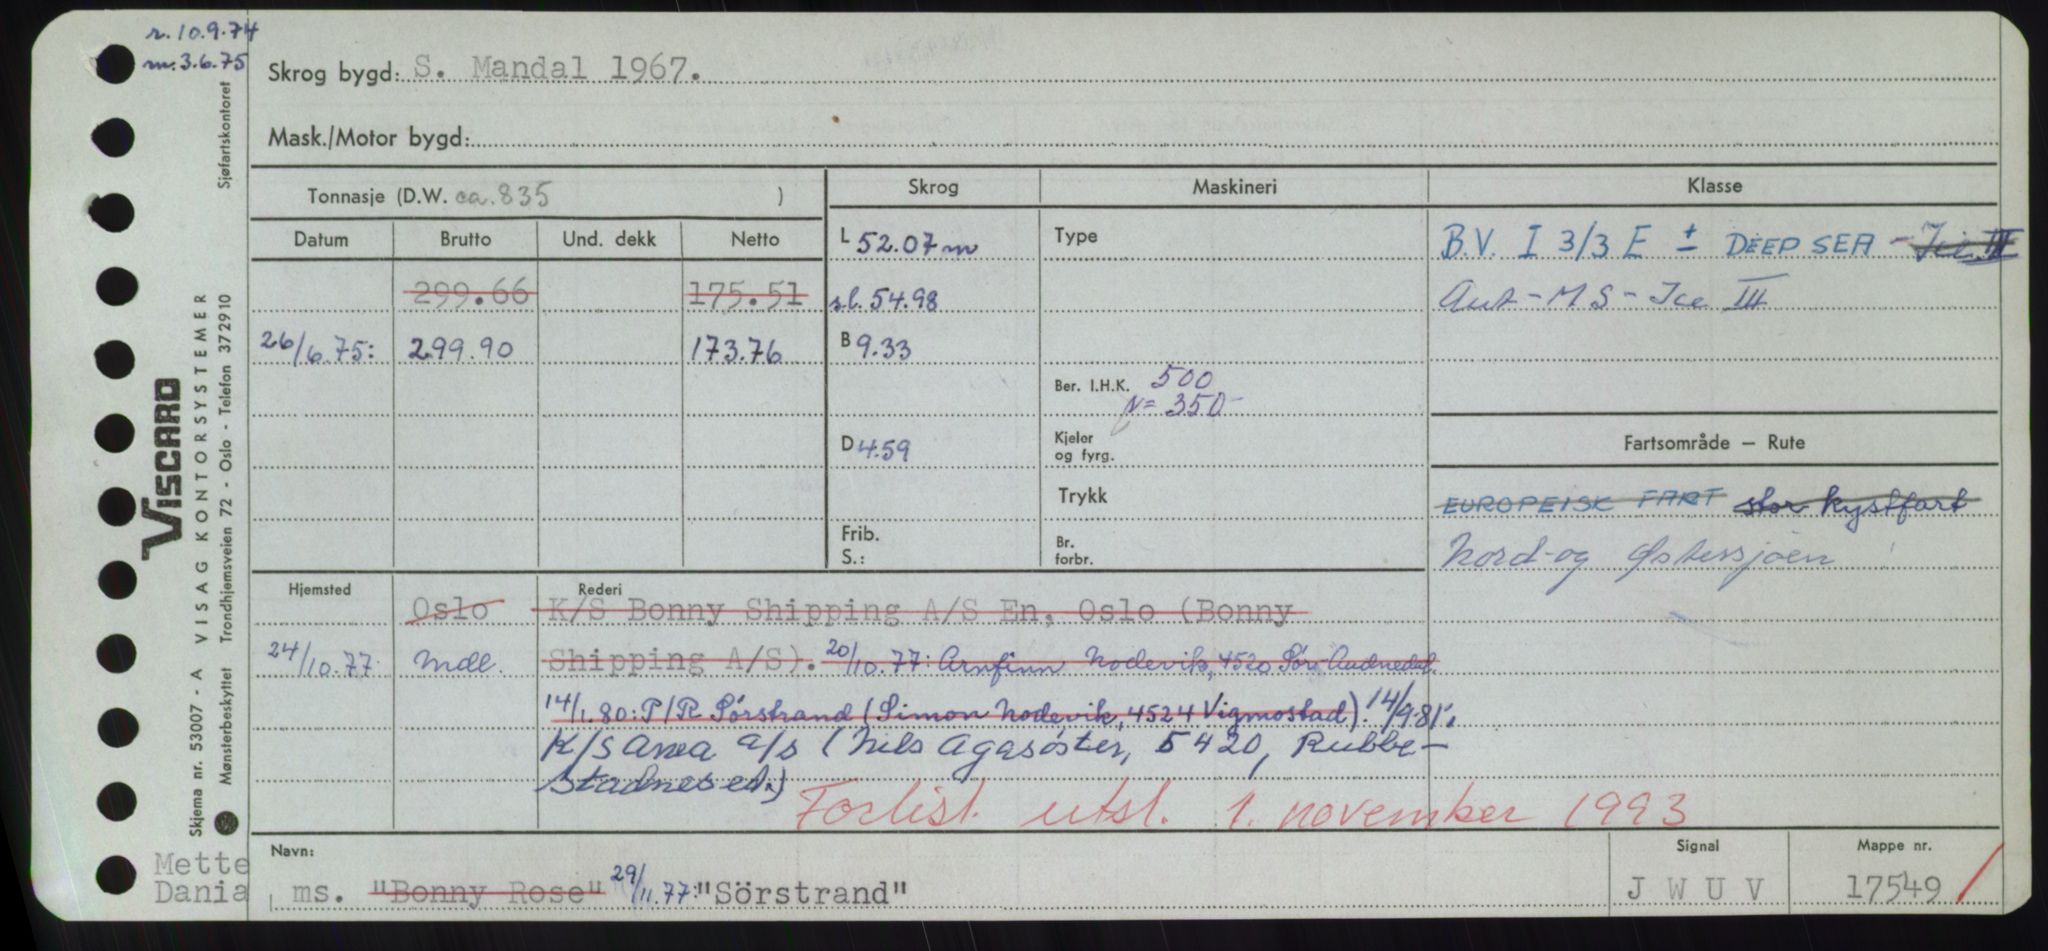 r. 10.9.74
m. 3.6.75
Skrog bygd: S. Mandal 1967.
Mask./Motor bygd:
Tonnasje (D.W. ca. 835 )
Datum Brutto Und. dekk Netto
299.66 175.51
26/6.75: 299.90 173.76
Skrog
L 52.07 m
s.l. 54.98
B 9.33
D 4.59
Frib.
S.:
Maskineri
Type
Ber. I.H.K. 500
N= 350-
Kjeler
og fyrg.
Trykk
Br.
forbr.
Klasse
B.V. I 3/3 E ± DEEP SEA - Ice III
Aut - M.S - Ice III
Fartsområde — Rute
EUROPEISK FART stor kystfart
Nord- og Østersjøen
Hjemsted Rederi
Oslo K/S Bonny Shipping A/S En, Oslo (Bonny
24/10.77: Mdl. Shipping A/S). 20/10.77: Arnfinn Nodevik, 4520 Sør-Audnedal.
14/1.80: P/R Sørstrand (Simon Nodevik, 4524 Vigmostad). 14/9.81.
K/S Anea a/s (Nils Agasøster, 5420, Rubbe-
stadnesed.)
Forlist. utsl. 1. november 1993
Navn:
ms. "Bonny Rose" 29/11.77: "Sörstrand"
Signal
J W U V
Mappe nr.
17549
Mette
Dania
Skjema nr. 53007 - A VISAG KONTORSYSTEMER
VISCARD
Mønsterbeskyttet Trondhjemsveien 72 - Oslo - Telefon 372910
Sjøfartskontoret